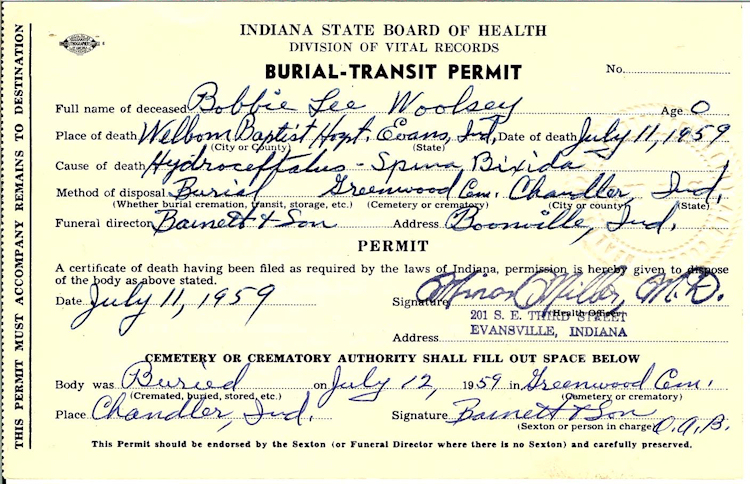 INDIANA STATE BOARD OF HEALTH
DIVISION OF VITAL RECORDS
BURIAL-TRANSIT PERMIT
No.
Full name of deceased Bobbie Lee Woolsey Age 0
Place of death Welborn Baptist Hospt. Evans, Ind. Date of death July 11, 1959
(City or County) (State)
Cause of death Hydroceftalus - Spina Bixida
Method of disposal Burial Greenwood Cem. Chandler, Ind.
(Whether burial cremation, transit, storage, etc.) (Cemetery or crematory) (City or county) (State)
Funeral director Barnett & Son Address Boonville, Ind.
PERMIT
A certificate of death having been filed as required by the laws of Indiana, permission is hereby given to dispose
of the body as above stated.
Date July 11, 1959 Signature Minor Miller, M.D.
(Health Officer)
201 S. E. THIRD STREET
Address EVANSVILLE, INDIANA
CEMETERY OR CREMATORY AUTHORITY SHALL FILL OUT SPACE BELOW
Body was Buried on July 12, 1959 in Greenwood Cem.
(Cremated, buried, stored, etc.) (Cemetery or crematory)
Place Chandler, Ind. Signature Barnett & Son
(Sexton or person in charge) O.A.B.
This Permit should be endorsed by the Sexton (or Funeral Director where there is no Sexton) and carefully preserved.
THIS PERMIT MUST ACCOMPANY REMAINS TO DESTINATION